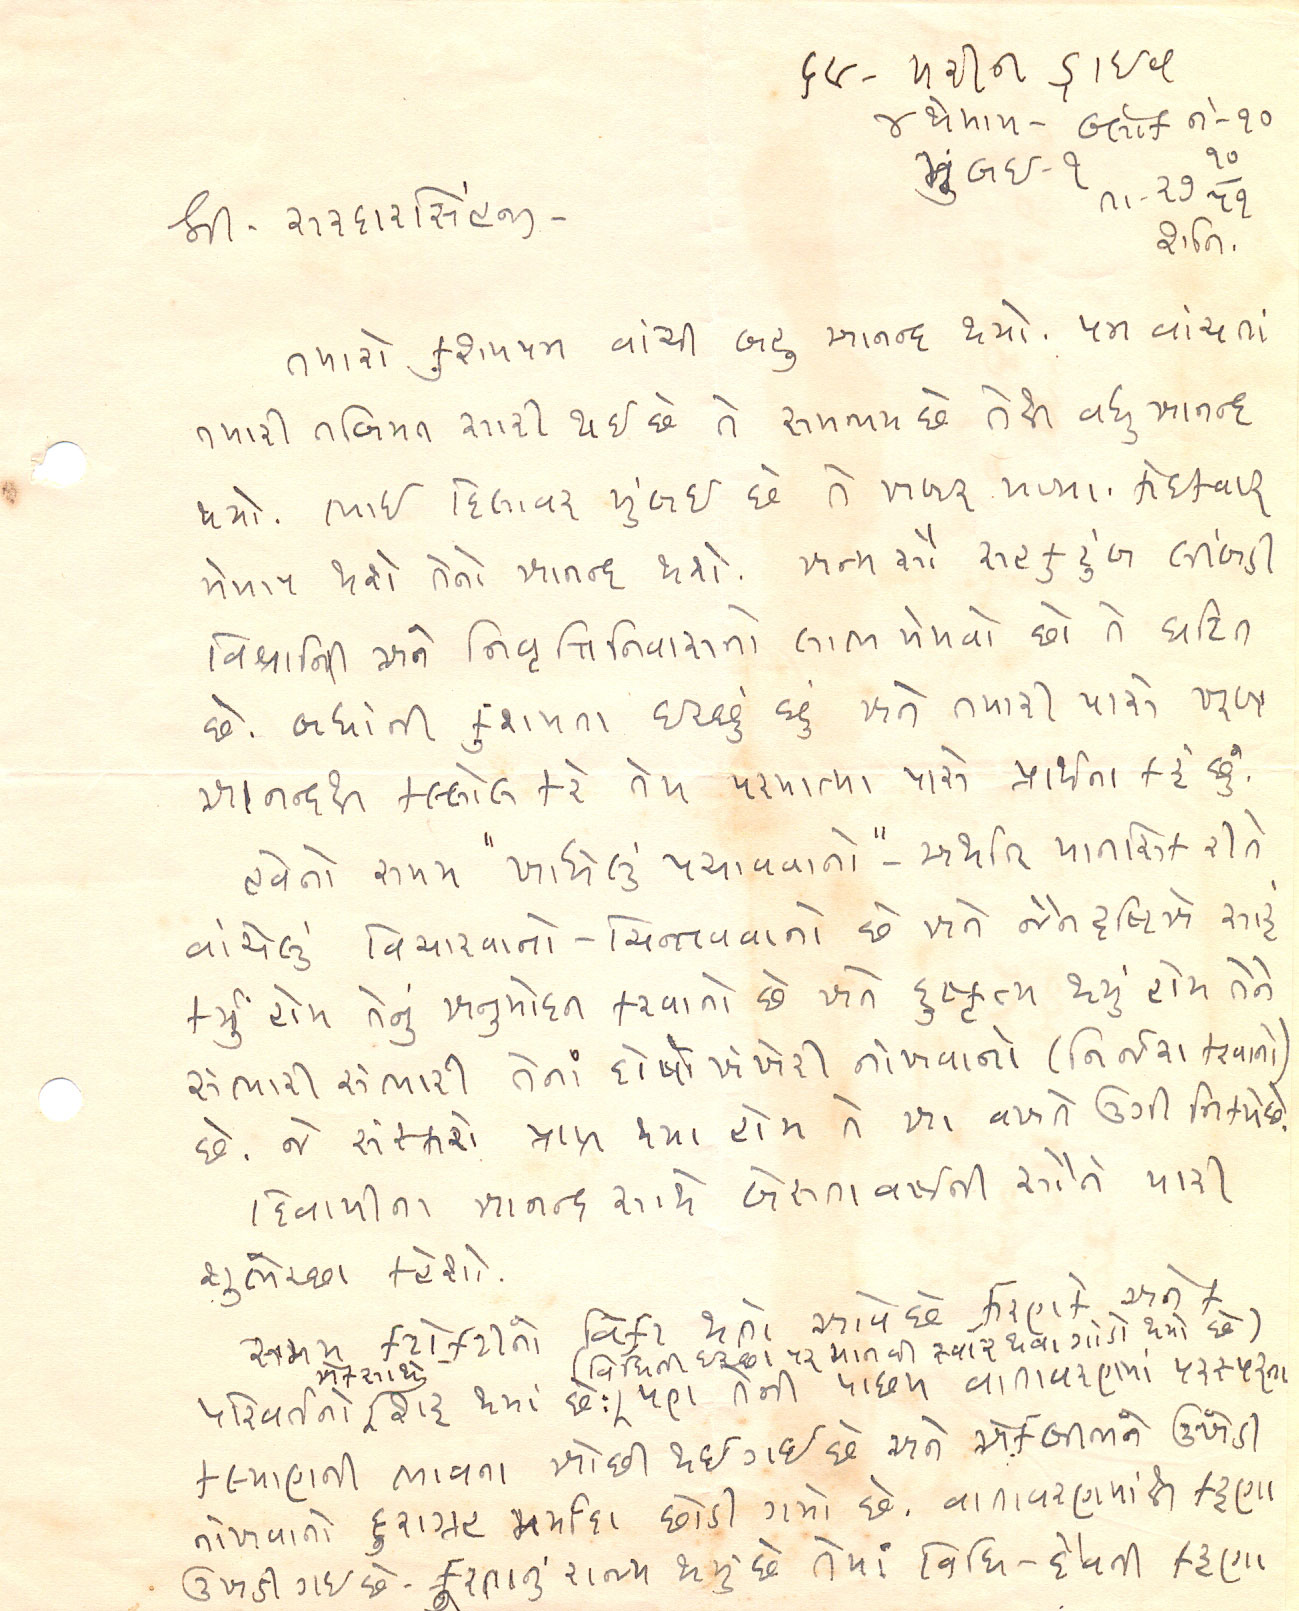 ૬૪- મરીન ડ્રાઈવ
જયેમાય- બ્લોક નં-૧૦
મુંબઇ-૧
તા- ૨૭ ૧૦/૫૧
શનિ.
શ્રી. સરદારસિંહજી-
તમારો કુશળપત્ર વાંચી બહુ આનન્દ થયો. પત્ર વાંચતાં
તમારી તબિયત સારી થઈ છે તે સમજાય છે તેથી વધુ આનન્દ
થયો. ભાઈ દિલાવર મુંબઈ છે તે ખબર મળ્યા. કોઇકવાર
મેળાપ થશે તેનો આનન્દ થશે. અન્ય સૌ સહકુટુંબ લીંબડી
વિશ્રાન્તિ અને નિવૃત્તિનિવાસનો લાભ મેળવો છો તે ઘટિત
છે. બધાંની કુશળતા ઇચ્છું છું અને તમારી પાસે ખૂબ
આનન્દથી કલ્લોલ કરે તેમ પરમાત્મા પાસે પ્રાર્થના કરું છું.
હવેનો સમય "ખાધેલું પચાવવાનો"- અર્થાત્ માનસિક રીતે
વાંચેલું વિચારવાનો- ચિન્તવવાનો છે અને જૈનદૃષ્ટિએ સારું
કર્યું હોય તેનું અનુમોદન કરવાનો છે અને દુષ્કૃત્ય થયું હોય તેને
સંભારી સંભારી તેનાં દોષો ખંખેરી નાંખવાનો (નિર્જરા કરવાનો)
છે. જે સંસ્કારો પ્રાપ્ત થયા હોય તે આ વખતે ઊગી નિકળેછે.
દિવાળીના આનન્દ સાથે બેસતા વર્ષની સૌને મારી
શુભેચ્છા કહેશો.
સમય કટોકટીનો વિકટ થતો આવે છે કારણકે અનેક
(વિધિની ઇચ્છા પરમાનવી સ્વાર થવા ગાંડો થયો છે)
એકસાથે
પરિવર્તનો શરૂ થયાં છે: પણ તેની પાછળ વાતાવરણમાં પરસ્પરના
કલ્યાણની ભાવના ઓછી થઈગઈ છે અને એકબીજાને ઉખેડી
નાંખવાનો દુરાગ્રહ મર્યાદા છોડી ગયો છે. વાતાવરણમાંથી કરૂણા
ઉખડી ગઈ છે- ક્રૂરતાનું રાજ્ય થયું છે તેમાં વિધિ-દેવની કરૂણા